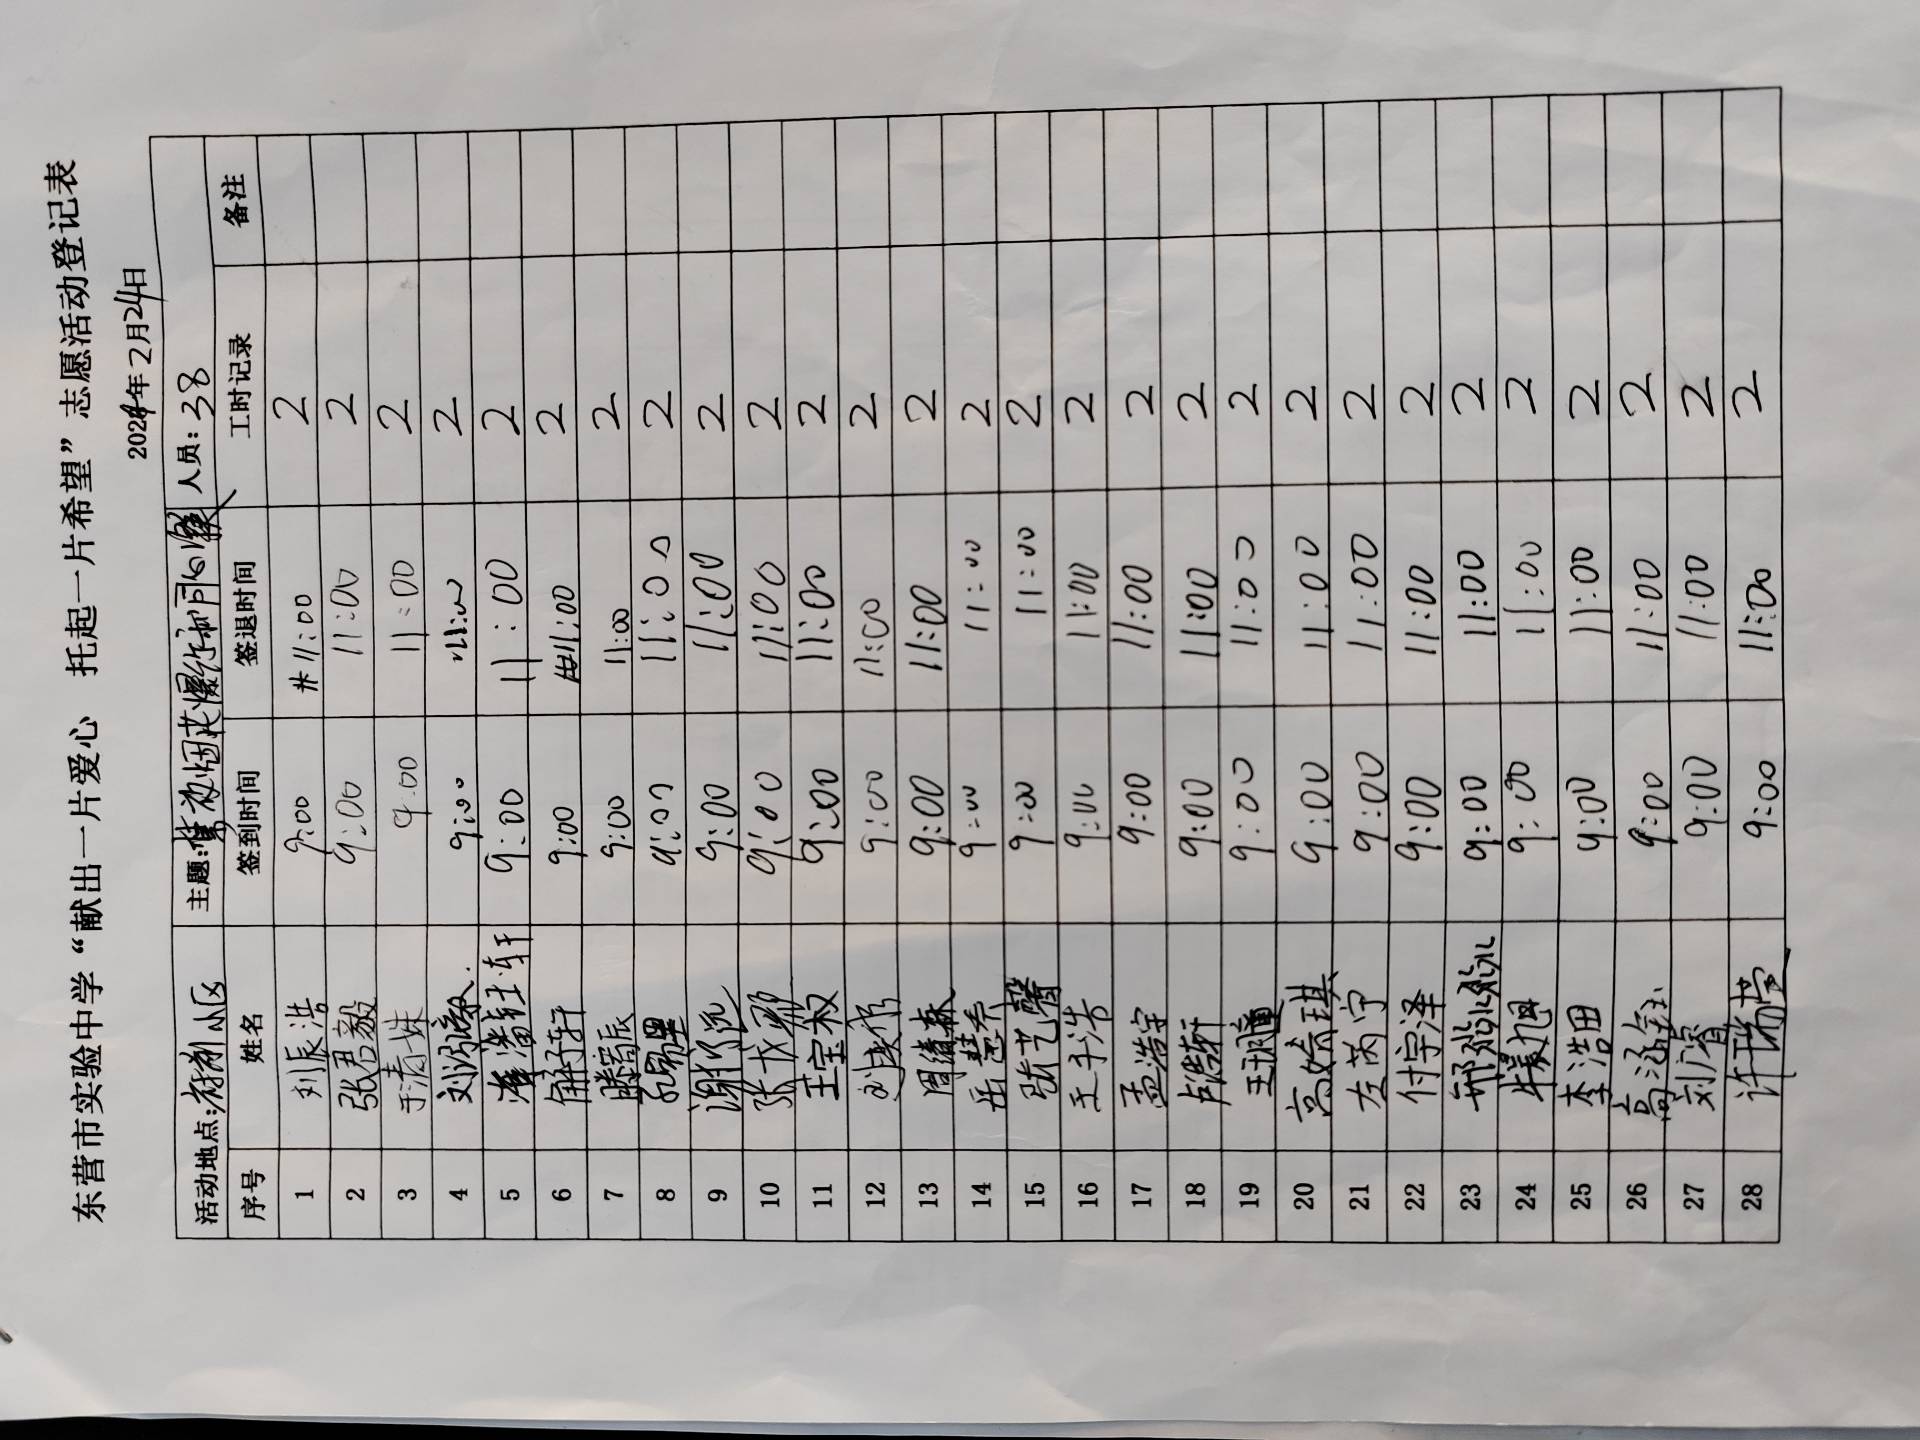 东营市实验中学“献出一片爱心 托起一片希望”志愿活动登记表
2024年2月24日
活动地点: 小区 主题: 烟花爆竹 人员: 38
序号 姓名 签到时间 签退时间 工时记录 备注
1 刘辰浩 9:00 11:00 2
2 张君毅 9:00 11:00 2
3 于清姝 9:00 11:00 2
4 刘 9:00 11:00 2
5 9:00 11:00 2
6 9:00 11:00 2
7 9:00 11:00 2
8 9:00 11:00 2
9 谢 远 9:00 11:00 2
10 张 9:00 11:00 2
11 王宝权 9:00 11:00 2
12 刘 9:00 11:00 2
13 周 森 9:00 11:00 2
14 岳慧 9:00 11:00 2
15 张艺馨 9:00 11:00 2
16 王子浩 9:00 11:00 2
17 孟浩宇 9:00 11:00 2
18 卢浩轩 9:00 11:00 2
19 王 9:00 11:00 2
20 高 琪 9:00 11:00 2
21 左芮宁 9:00 11:00 2
22 付宇泽 9:00 11:00 2
23 9:00 11:00 2
24 旭 9:00 11:00 2
25 李浩田 9:00 11:00 2
26 高 9:00 11:00 2
27 刘 睿 9:00 11:00 2
28 许瑞 9:00 11:00 2